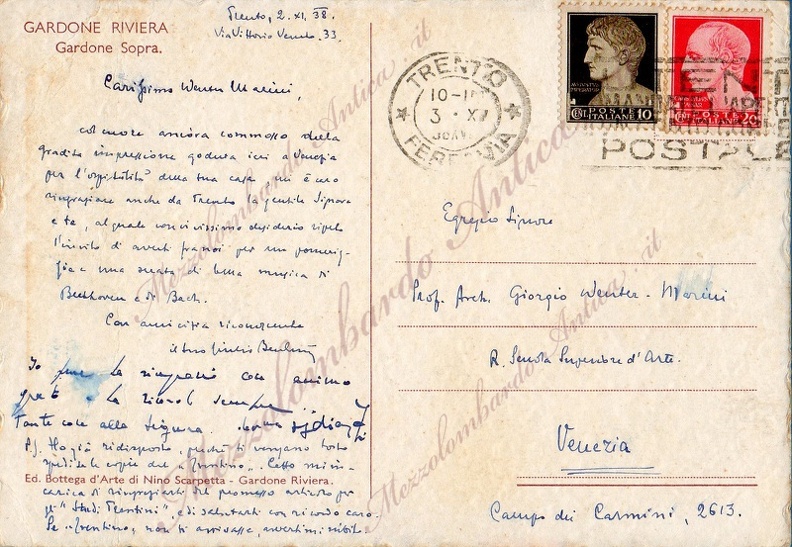 GARDONE RIVIERA
Gardone Sopra.
Trento, 2. XI. 38.
Via Vittorio Veneto. 33
Carissimo Wenter Marini,
col cuore ancora commosso della
gradita impressione goduta ieri a Venezia
per l'ospitalità della tua casa mi è caro
ringraziare anche da Trento la gentile Signora
e te, al quale con vivissimo desiderio ripeto
l'invito di averti fra noi per un pomerig-
gio e una serata di bella musica di
Beethoven e di Bach.
Con amicizia riconoscente
il tuo Giulio
Io pure La ringrazio con animo
grato e La ricordo sempre
Tante cose alla Signora.
P.S. Ho già ridisposto, perché ti vengano tosto
spedite le copie del "Trentino". Cetto m'in-
carica di ringraziarti del promesso articolo per
gli "Studi Trentini", e di salutarti con ricordo caro.
Se "Trentino" non ti arrivasse, avvertimi subito.
Ed. Bottega d'Arte di Nino Scarpetta - Gardone Riviera.
TRENTO
10-11
3 · XI
FERROVIA
POSTE ITALIANE
CENT. 10
POSTE ITALIANE
CENT. 20
POSTALE
Egregio Signore
Prof. Arch. Giorgio Wenter-Marini
R. Scuola Superiore d'Arte.
Venezia
Campo dei Carmini, 2613.
Mezzolombardo Antica . it
Mezzolombardo Antica . it
Mezzolombardo Antica . it